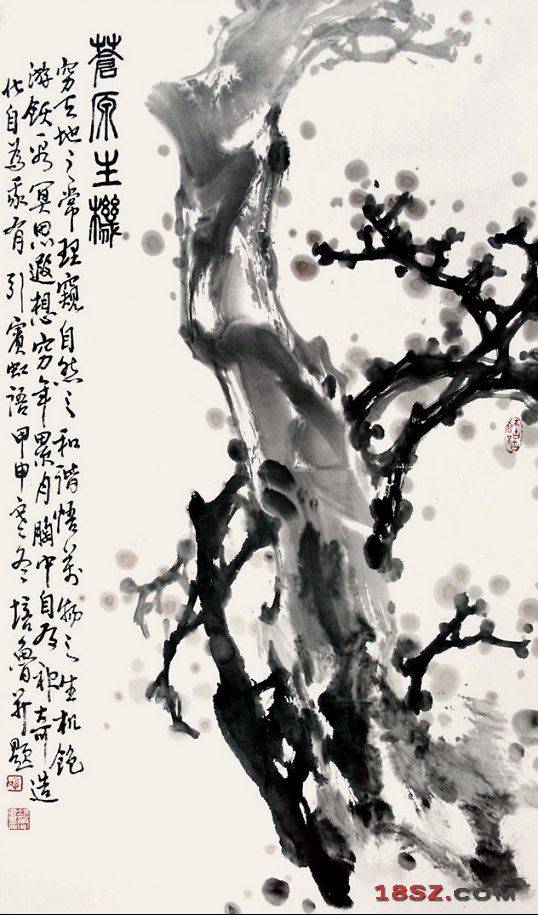 蒼原生機
穷天地之常理窺自然之和谐悟萬物之生机飽
游飫看冥思遐想穷年累月胸中自有神奇造
化自為我有 引賓虹语 甲申寒冬 培魯并題
18SZ.COM